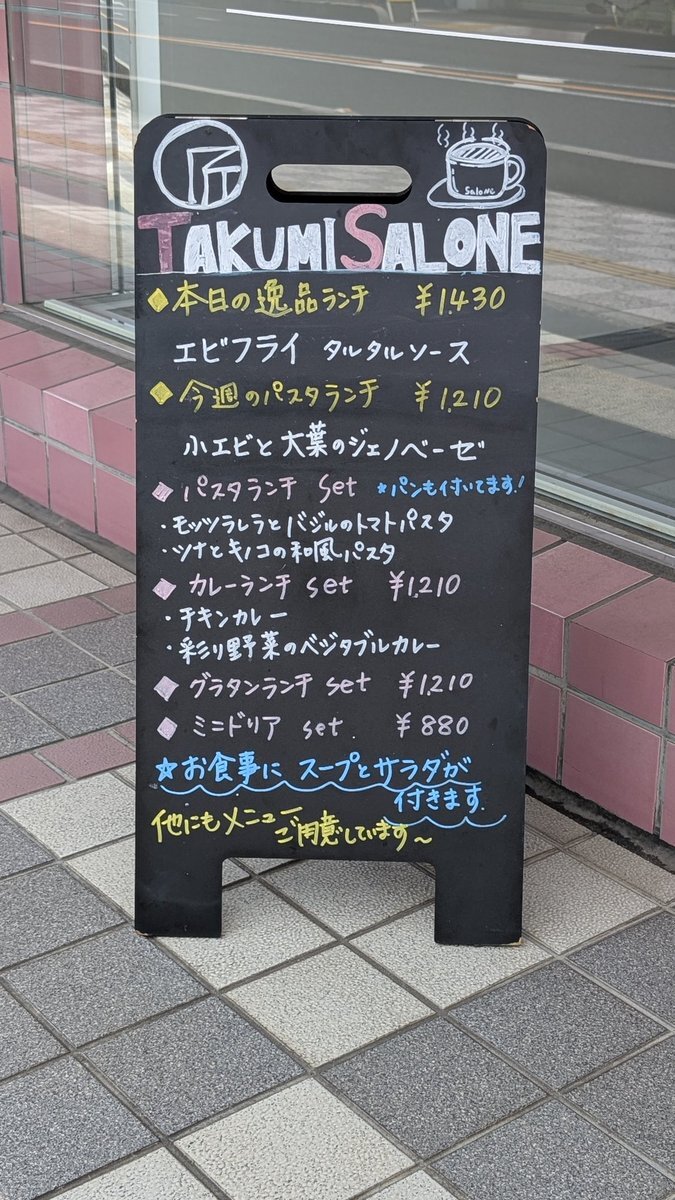 匠
Salone
TAKUMI SALONE
◆本日の逸品ランチ ¥1,430
エビフライ タルタルソース
◆今週のパスタランチ ¥1,210
小エビと大葉のジェノベーゼ
◆パスタランチ set ☆パンも付いてます!
・モッツラレラとバジルのトマトパスタ
・ツナとキノコの和風パスタ
◆カレーランチ set ¥1,210
・チキンカレー
・彩り野菜のベジタブルカレー
◆グラタンランチ set ¥1,210
◆ミニドリア set. ¥880
☆お食事に スープとサラダが
付きます.
他にもメニュー
ご用意しています~